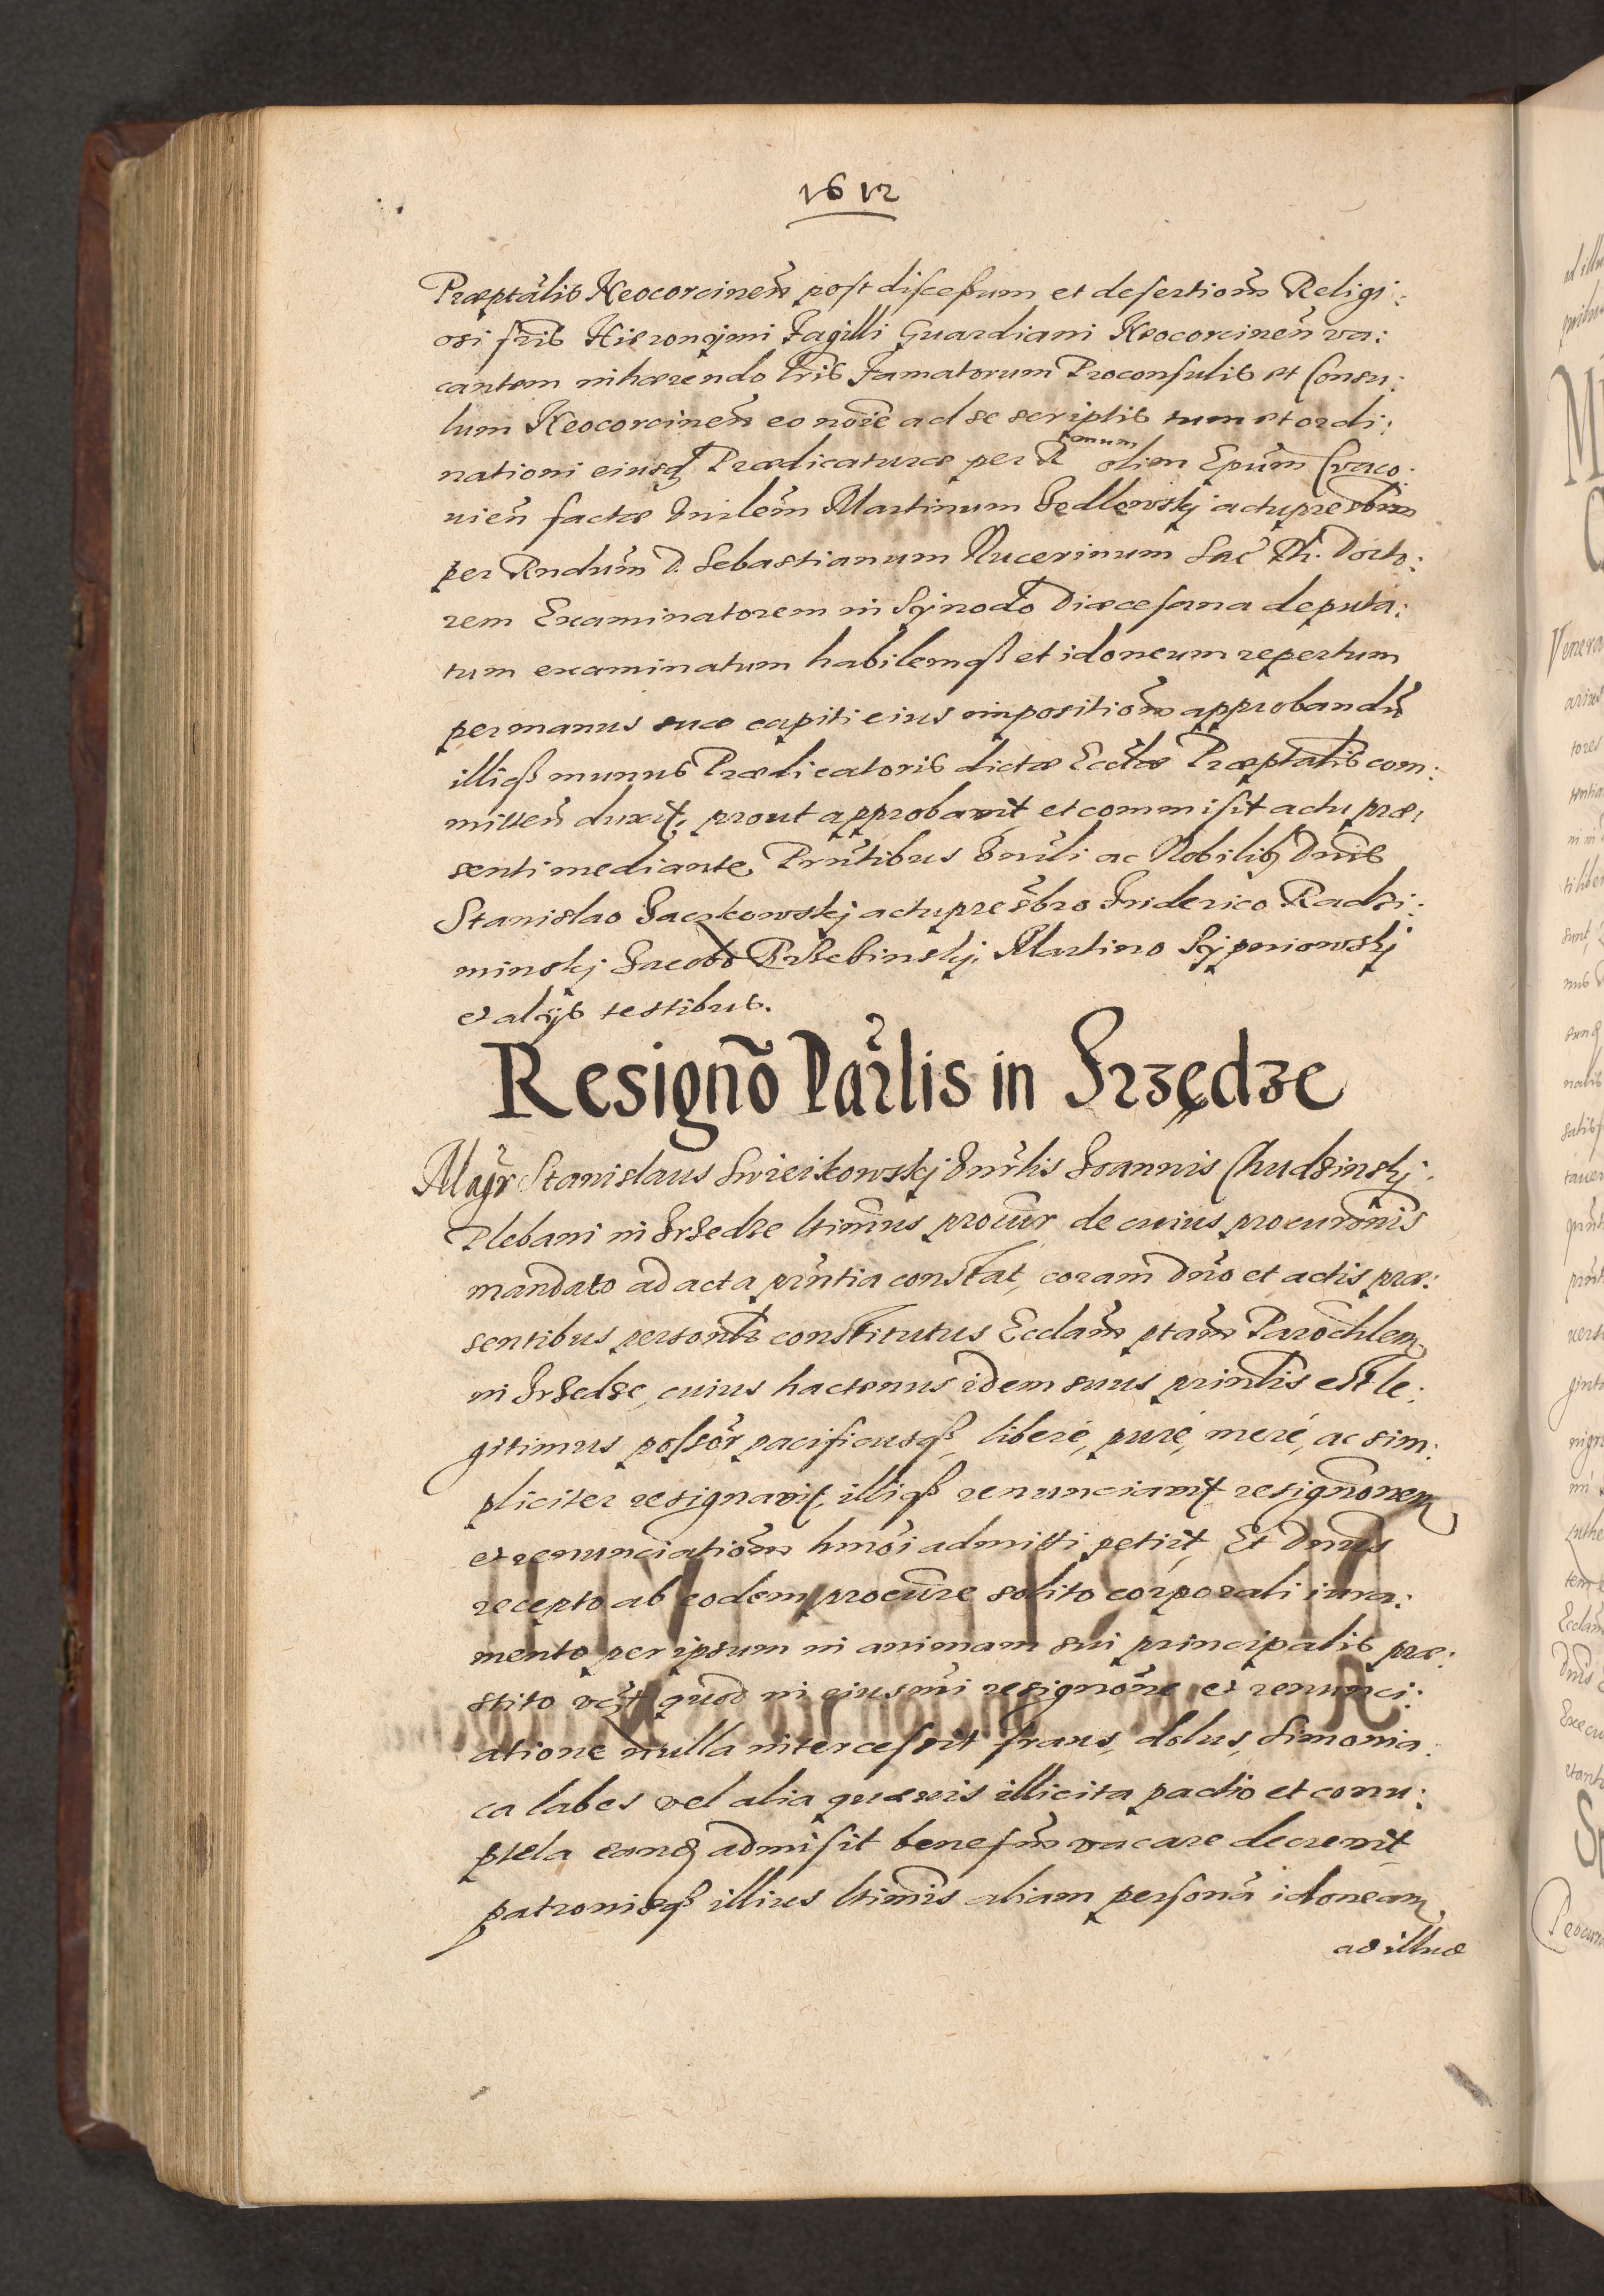 1612
Præptãlis Neocorcineñ post discessum et desertionẽ Religi:
osi fr̃is Hieronymi Fagilli Guardiani Neocorcineñ va:
cantem inhærendo l̃ris Famatorum Proconsulis et Consu:
lum Neocorcineñ eo nõie ad se scriptis tum et ordi:
nationi eiusq̃ Prædicaturæ per R olim Epũm Craco:
uieñ factæ Vnilẽm Martinum Sedlewskj actupresbr̃m
per Rndũm D. Sebastianum Nucerinum Sac̃ Th. Docto:
rem Examinatorem in Synodo Diæcesana deputa:
tum examinatum habilemqß et idoneum repertum
per manus suæ capiti eius impositionẽ approbandũ
illiqß munus Prædicatoris dictæ Eccl̃æ Præptalis com:
mitteñ duxit, prout approbavit et commisit actu præ:
senti mediante, Prñtibus Vnr̃li ac Nobilibꝫ Dnis
Stanislao Saczkowskj actupresb̃ro Friderico Radzi:
minskj Jacobo Przebinskj, Martino Sypniowskj
et alijs testibus.
Resignõ Par̃lis in Frzędze
Mag̃r Stanislaus Swieikowskj Vnr̃lis Joannis Chudzinskj
Plebani in Frzedze l̃timus procur̃ de cuius procurõnis
mandato ad acta prñtia constat, coram Dño et actis præ:
sentibus personl̃r constitutus Ecclãm ptãm Parochl̃em
in Frzedze, cuius hactenus idem suus prinl̃is est le:
gitimus possõr pacificusqß, liberè, purè, merè, ac sim:
pliciter resignavit, illiqß renunciavit resignõnem
et renunciationẽ hm̃oi admitti petiit, Et Dnus
recepto ab eodem procur̃e solito corporali iura:
mento per ipsum in animam sui principalis præ:
stito vc̃t quod in eiusmĩ resignõne et renunci:
atione nulla intercesserit fraus, dolus, Simonia:
ca labes vel alia quævis illicita pactio et corru:
ptela eanqꝫ admisit benefm̃ vacare decrevit
patronisqß illius l̃timis aliam personã idoneam
ad illud